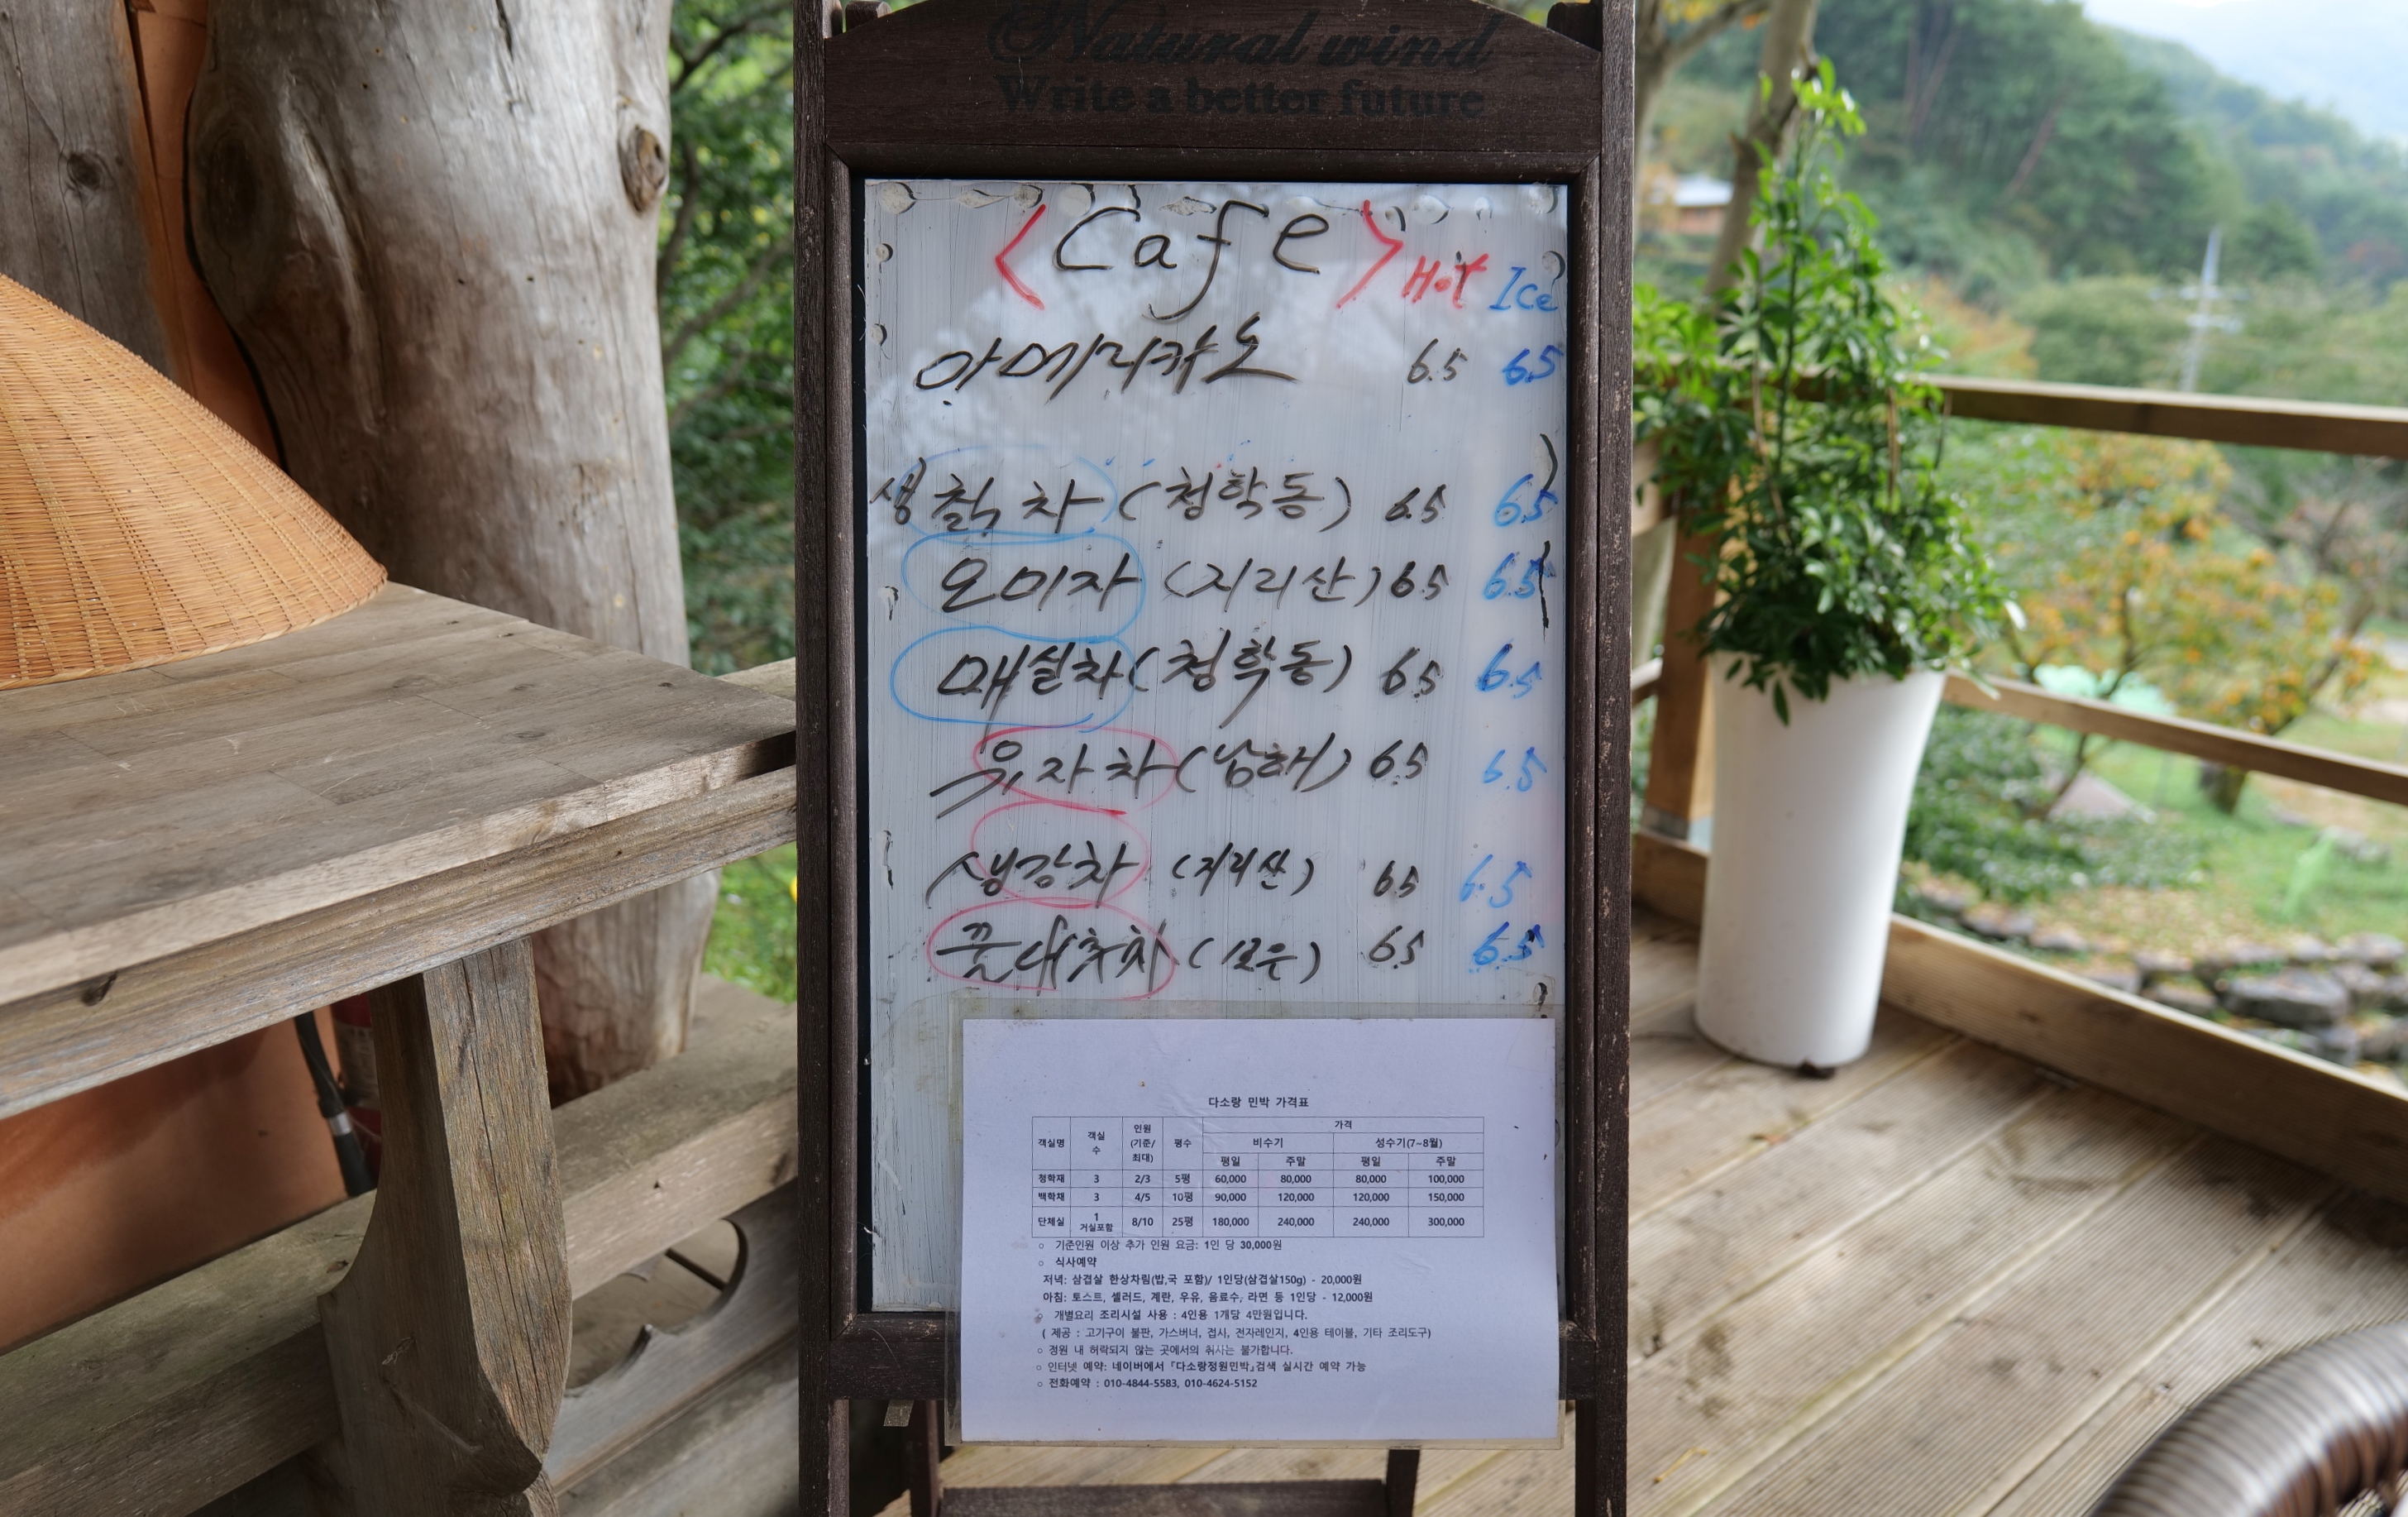 Natural wind
Write a better future
<Cafe> Hot Ice
아메리카노 6.5 6.5
생칡차 (청학동) 6.5 6.5
오미자 (지리산) 6.5 6.5
매실차 (청학동) 6.5 6.5
유자차 (남해) 6.5 6.5
생강차 (지리산) 6.5 6.5
꿀대추차 (보은) 6.5 6.5
다소랑 민박 가격표
객실명 객실수 인원(기준/최대) 평수 가격
비수기 성수기(7~8월)
평일 주말 평일 주말
청학재 3 2/3 5평 60,000 80,000 80,000 100,000
백학채 3 4/5 10평 90,000 120,000 120,000 150,000
단체실 1 거실포함 8/10 25평 180,000 240,000 240,000 300,000
○ 기준인원 이상 추가 인원 요금: 1인 당 30,000원
○ 식사예약
저녁: 삼겹살 한상차림(밥,국 포함)/ 1인당(삼겹살150g) - 20,000원
아침: 토스트, 샐러드, 계란, 우유, 음료수, 라면 등 1인당 - 12,000원
○ 개별요리 조리시설 사용 : 4인용 1개당 4만원입니다.
( 제공 : 고기구이 불판, 가스버너, 접시, 전자레인지, 4인용 테이블, 기타 조리도구)
○ 정원 내 허락되지 않는 곳에서의 취사는 불가합니다.
○ 인터넷 예약: 네이버에서 「다소랑정원민박」검색 실시간 예약 가능
○ 전화예약 : 010-4844-5583, 010-4624-5152